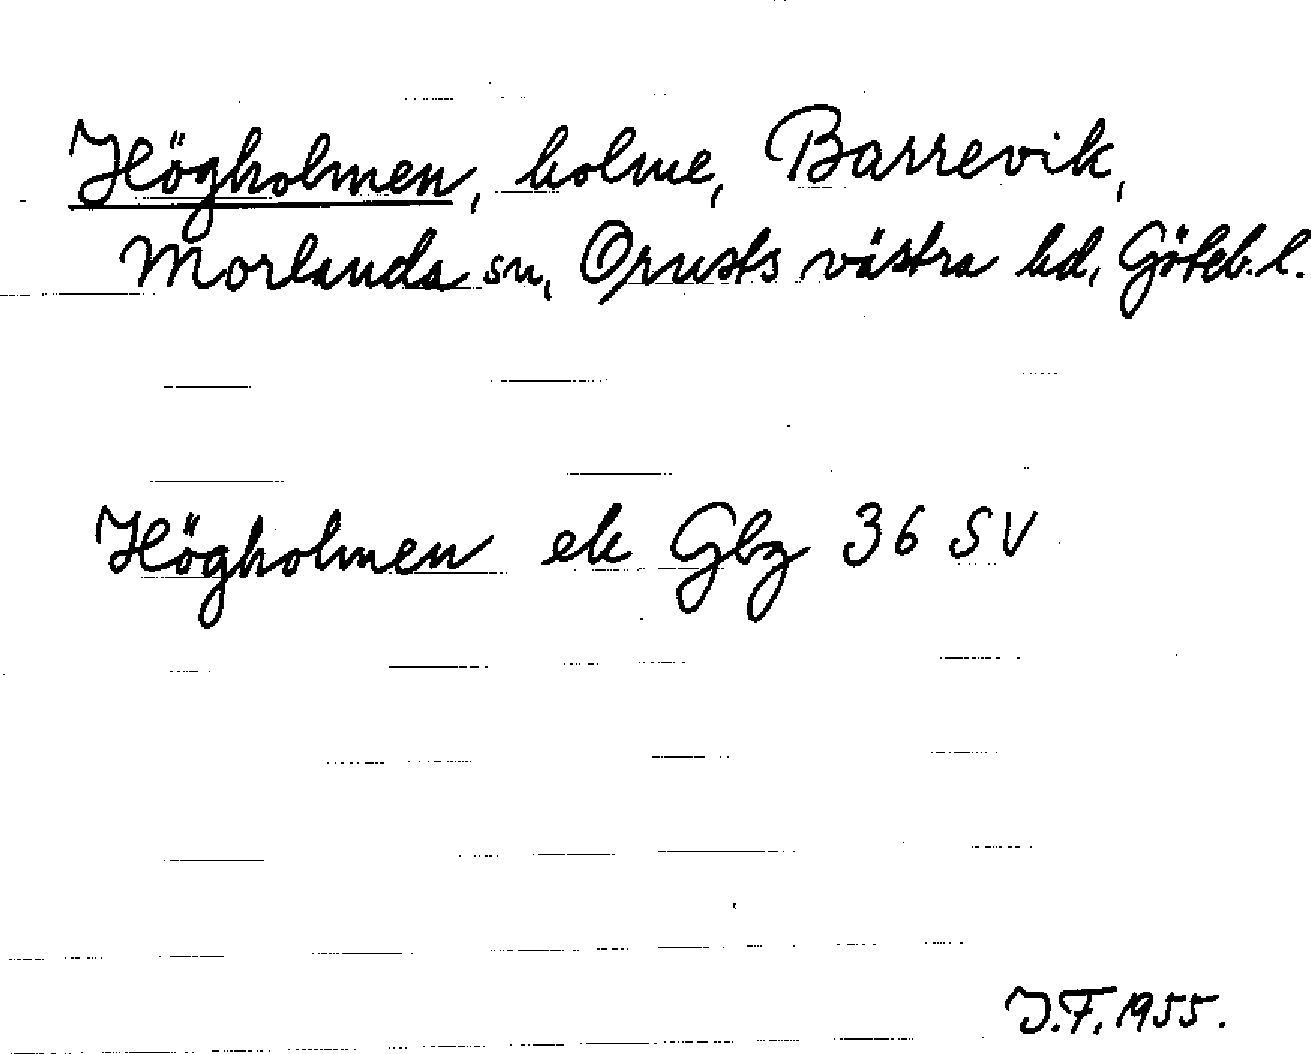 Högholmen, holme, Barrevik,
Morlanda sn, Orusts västra hd, Göteb.l.
Högholmen ek Gbg 36 SV
J.F. 1955.